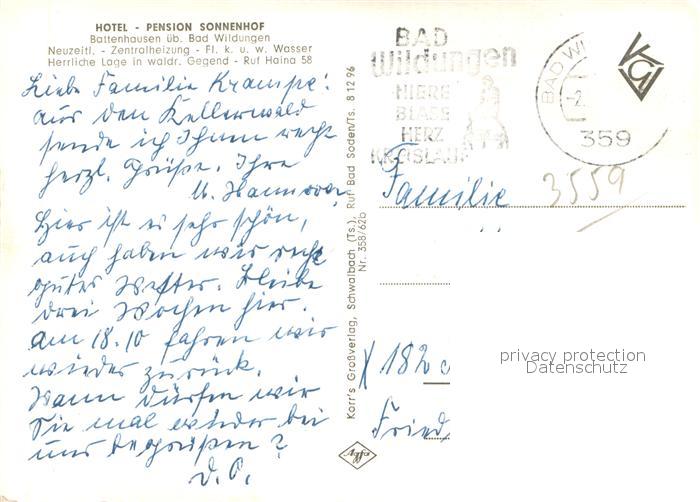 HOTEL - PENSION SONNENHOF
Battenhausen üb. Bad Wildungen
Neuzeitl. - Zentralheizung - Fl. k. u. w. Wasser
Herrliche Lage in waldr. Gegend - Ruf Haina 58
Liebe Familie Krampe!
Aus dem Kellerwald
sende ich Ihnen recht
herzl. Grüße. Ihre
Hier ist es sehr schön,
auch haben wir recht
gutes Wetter. Bleibe
drei Wochen hier.
Am 18.10 fahren wir
wieder zurück.
Wann dürfen wir
Sie mal wieder bei
uns begrüßen?
D. O.
Karr's Großverlag, Schwalbach (Ts.), Ruf Bad Soden/Ts. 8 12 96
Nr. 358/62b
Agfa
BAD
Wildungen
NIERE
BLASE
HERZ
KREISLAUF
BAD WI
-2.
359
KGV
Familie
3559
X 182
Fried
privacy protection
Datenschutz